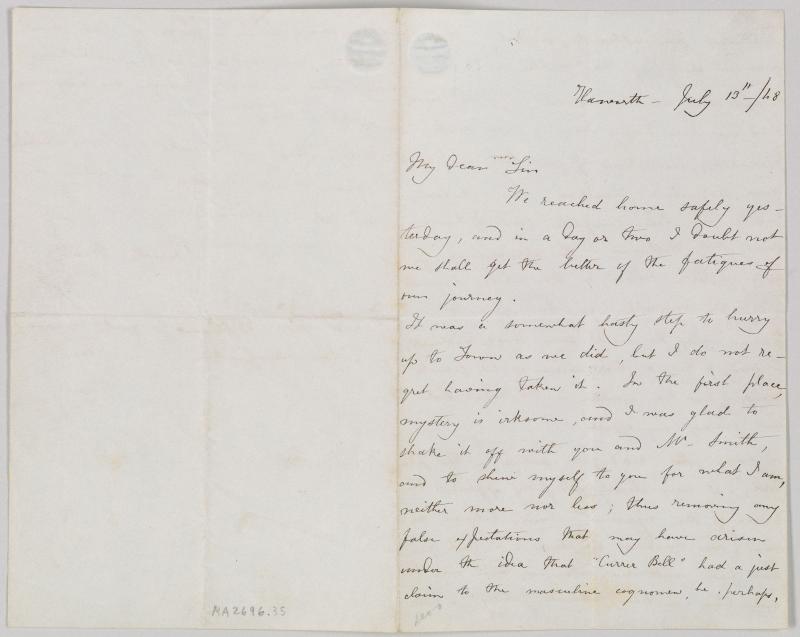 Haworth - July 13th/48
My dear Sir
We reached home safely yes-
terday, and in a day or two I doubt not
we shall get the better of the fatigues of
our journey.
It was a somewhat hasty step to hurry
up to Town as we did, but I do not re-
gret having taken it. In the first place,
mystery is irksome, and I was glad to
shake it off with you and Mr Smith,
and to shew myself to you for what I am,
neither more nor less; thus removing any
false expectations that may have arisen
under the idea that "Currer Bell" had a just
claim to the masculine cognomen, he, perhaps,
MA2696.35